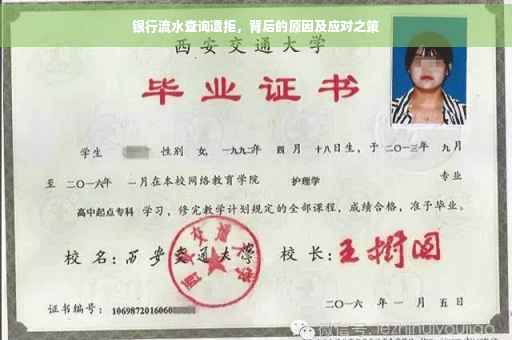 银行流水查询遭拒，背后的原因及应对之策
西安交通大学
毕业证书
学生 性别 女,一九九二年 四月 十八日生，于二〇一三年 九月
至 二〇一六年 一月在本校网络教育学院 护理学 专业
高中起点专科 学习，修完教学计划规定的全部课程，成绩合格，准予毕业。
校名：西安交通大学 校长：王树国
西安交通大学
证书编号：1069872016060
二〇一六年 一月 五日
微信号: jezhihuiyoujiao